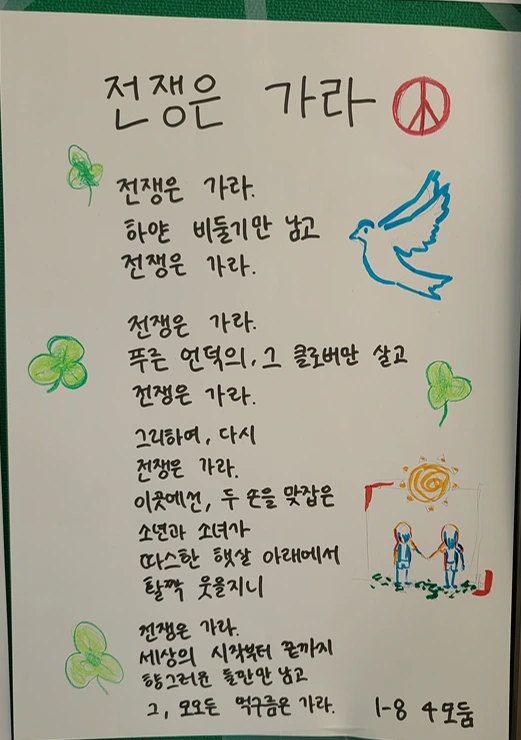 전쟁은 가라
전쟁은 가라.
하얀 비둘기만 남고
전쟁은 가라.
전쟁은 가라.
푸른 언덕의, 그 클로버만 살고
전쟁은 가라.
그리하여, 다시
전쟁은 가라.
이곳에선, 두 손을 맞잡은
소년과 소녀가
따스한 햇살 아래에서
활짝 웃을지니
전쟁은 가라.
세상의 시작부터 끝까지
향그러운 들만 남고
그, 모오든 먹구름은 가라.
1-8 4모둠